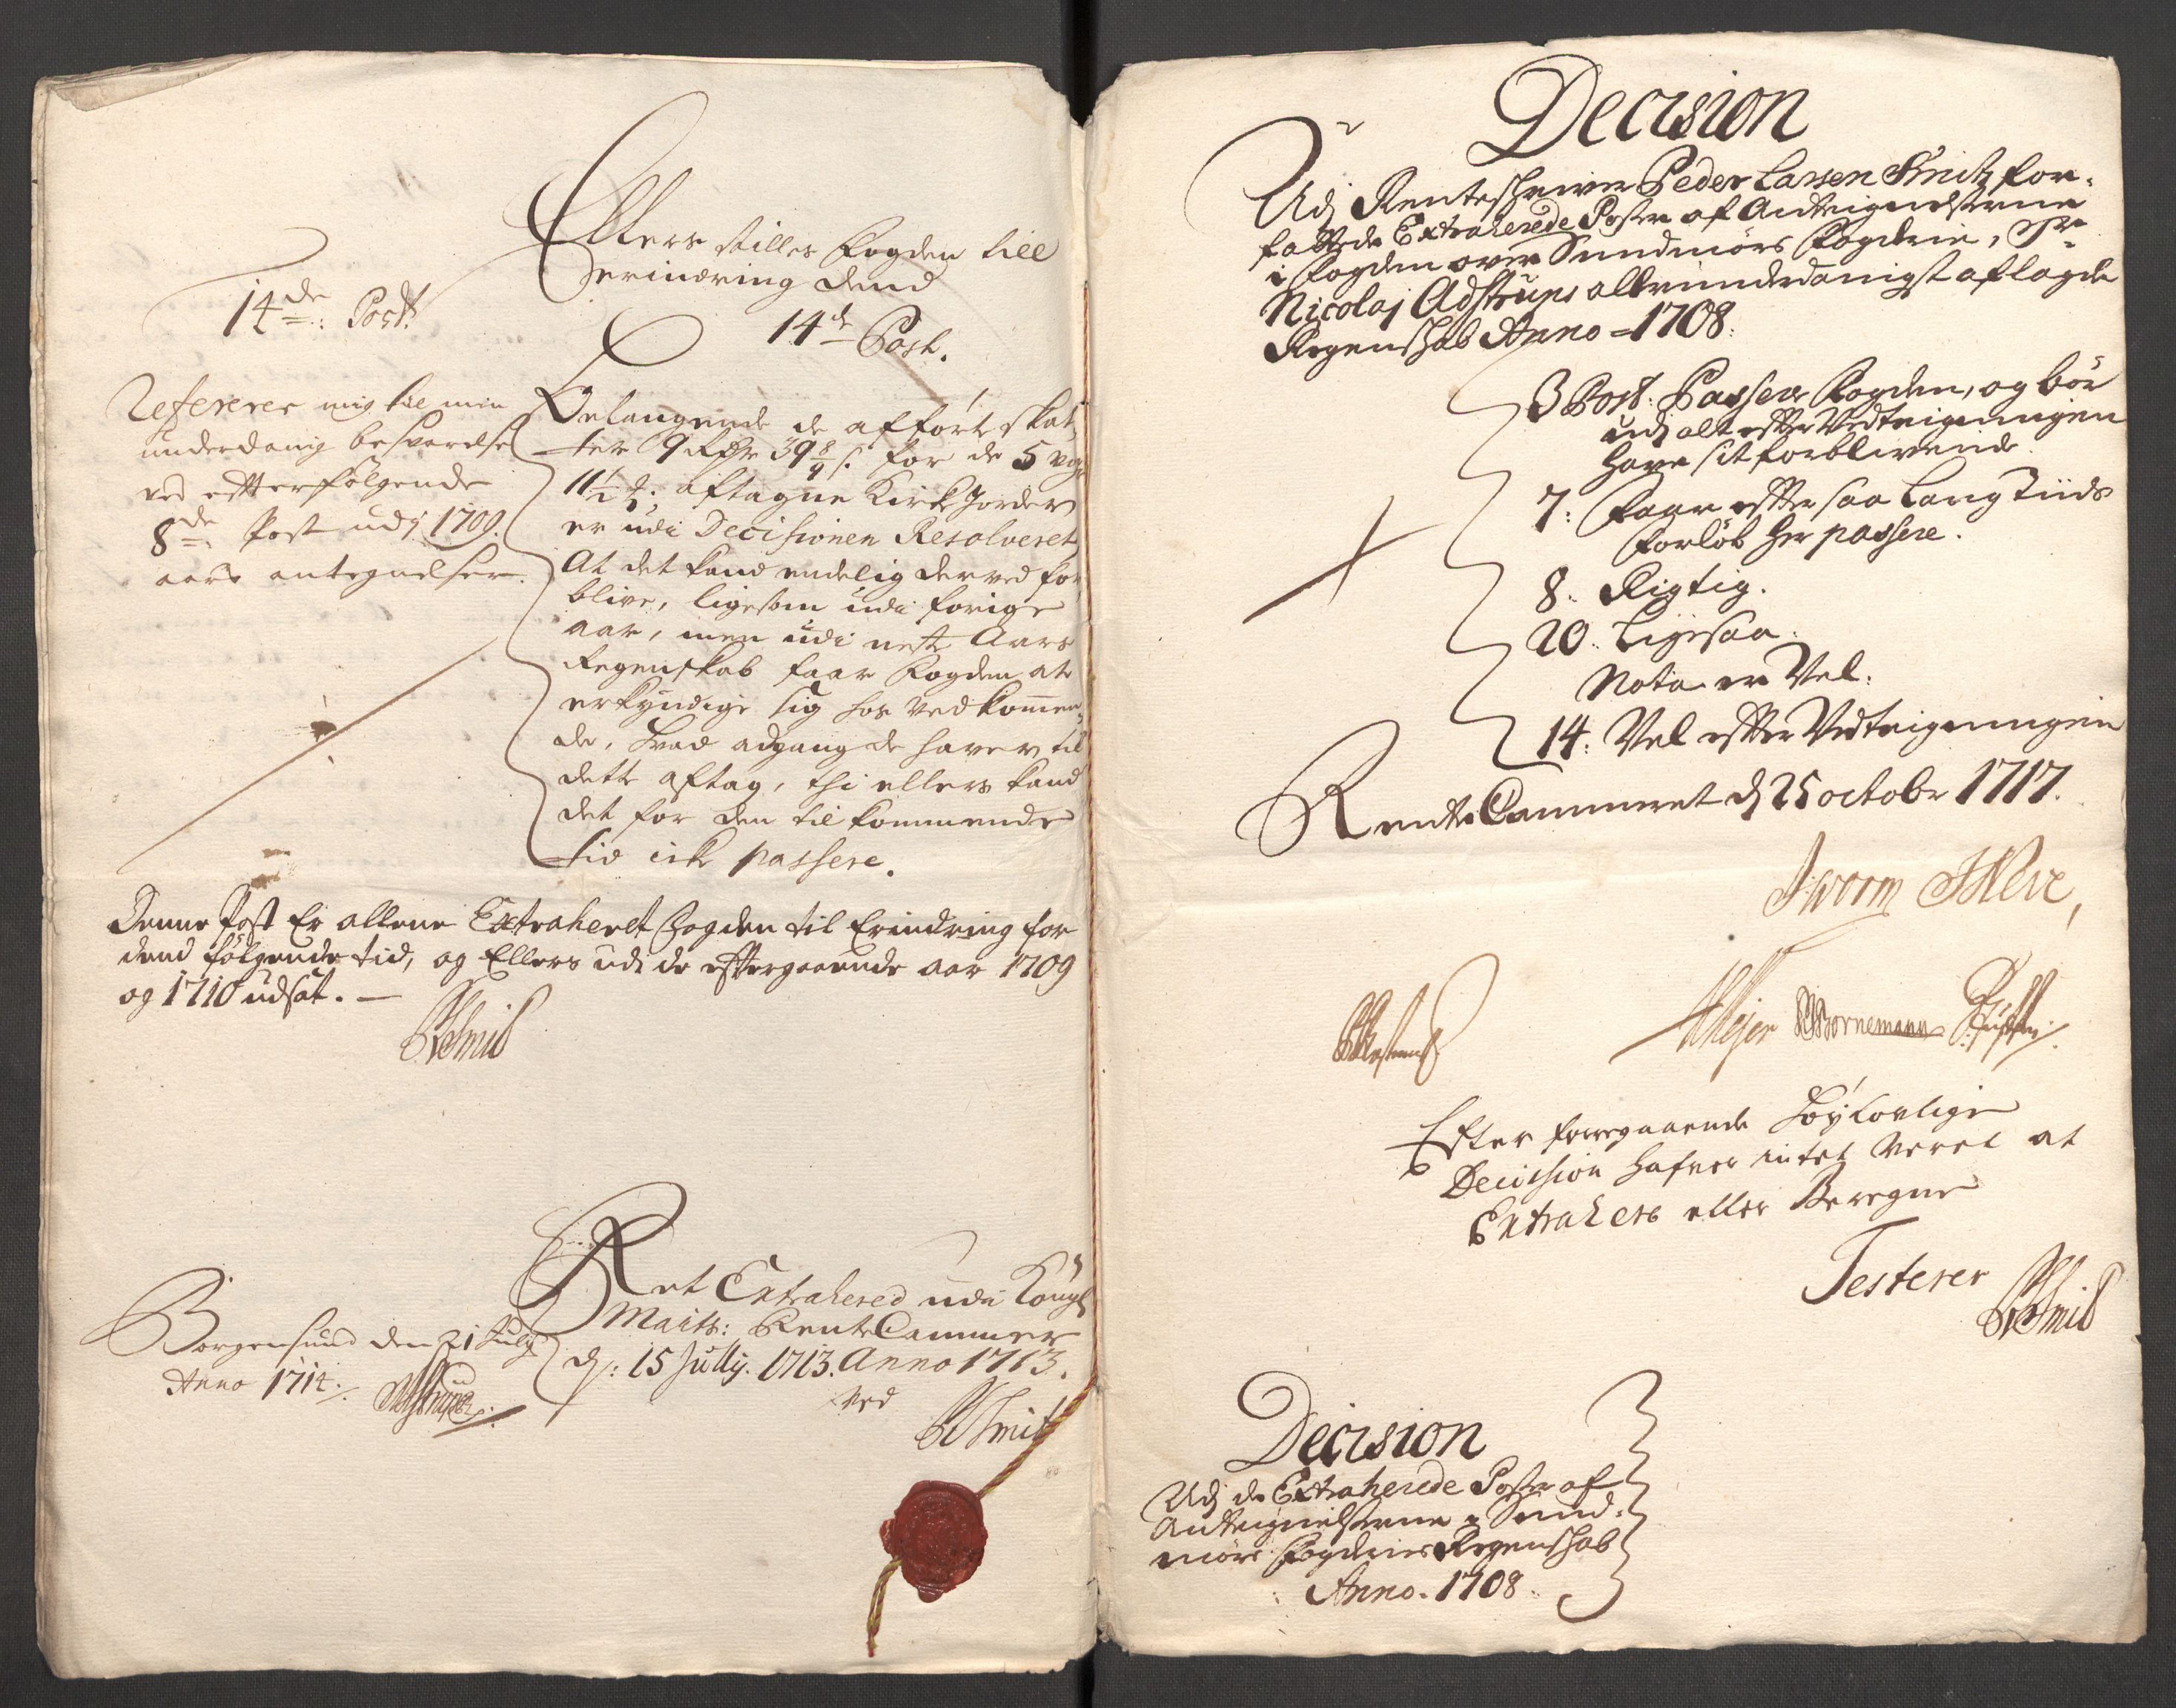 14de: Post.
Refererer mig til min
underdanig besvarelse
ved efterfølgende
8de Post udj 1709.
aars antegnelser.
Ellers stilles Fogden till
erindring dend
14de Post.
Belangende de afførte skat-
ter 9 Rdr 39 8/9 s. for de 5 vog
11 1/2 aftagne Kirke Jorder
er udi Decisionen Resolveret
At det kand endelig derved for
blive, ligesom udi forige
aar, men udi neste Aars
Regenskab faar Fogden at
erkyndige sig hos vedkommen-
de, hvad adgang de haver til
dette aftag, thi ellers kand
det for den tilkommende
tid icke passere.
Denne Post Er allene Extraheret Fogden til Erindring for
dend følgende tid, og Ellers udi de eftergaaende aar 1709
og 1710 udsat. —
PLSmid
Borgensund den 21 July
Anno 1714.
NAstrup
Ret Extrahered udi Kongl
Maits: Rente Cammer
dj: 15 Jully. 1713. Anno 1713.
ved
PLSmid
Decision
Udj Renteschriver Peder Larsen Smitz for-
fattede Extraherede Poster af Anteignelserne
i Fogden over Sundmörs Fogderie, Sr
Nicolaj Adstrups allerunderdanigst aflagde
Regenschab Anno = 1708:
3 Post. Passerer Fogden, og bör
udj alt efter Vedteigningen
have sit forblivende.
7: Faar efter saa Lang Tiids
Forløb her passere.
8. Rigtig.
20. Ligesaa.
Nota er Vel.
14. Vel efter Vedteigningen
Rente Cammeret dj 25 octobr 1717.
JWorm
Meyer Bornemann
Efter foregaaende Höylovlige
Decission hafver intet veret at
Extrahere eller Beregne
Testerer
PLSmid
Decision
Udj de Extraherede Poster af
Anteignelserne i Sund-
möre Fogderies Regenschab
Anno. 1708.